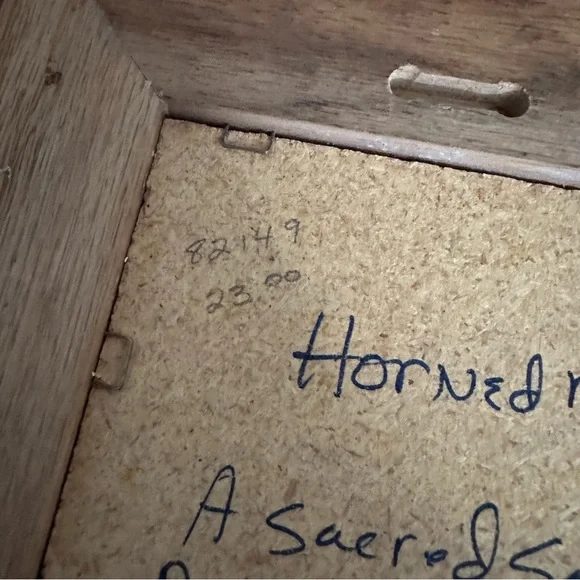 82149
23.00
Horned
A Sacred